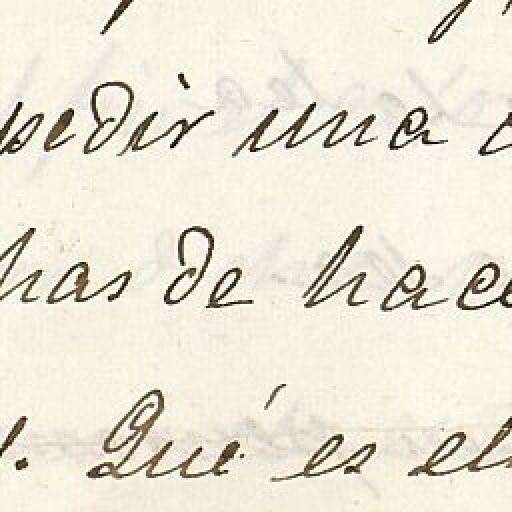 pedir una
has de hace
. Qué es el